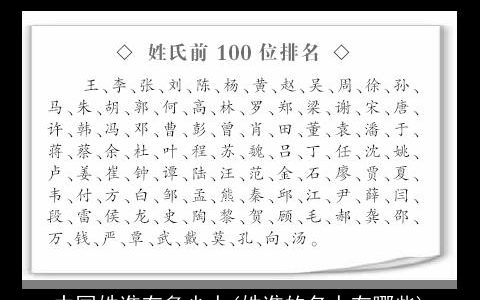 ◇ 姓氏前 100 位排名 ◇
王、李、张、刘、陈、杨、黄、赵、吴、周、徐、孙、
马、朱、胡、郭、何、高、林、罗、郑、梁、谢、宋、唐、
许、韩、冯、邓、曹、彭、曾、肖、田、董、袁、潘、于、
蒋、蔡、余、杜、叶、程、苏、魏、吕、丁、任、沈、姚、
卢、姜、崔、钟、谭、陆、汪、范、金、石、廖、贾、夏、
韦、付、方、白、邹、孟、熊、秦、邱、江、尹、薛、闫、
段、雷、侯、龙、史、陶、黎、贺、顾、毛、郝、龚、邵、
万、钱、严、覃、武、戴、莫、孔、向、汤。